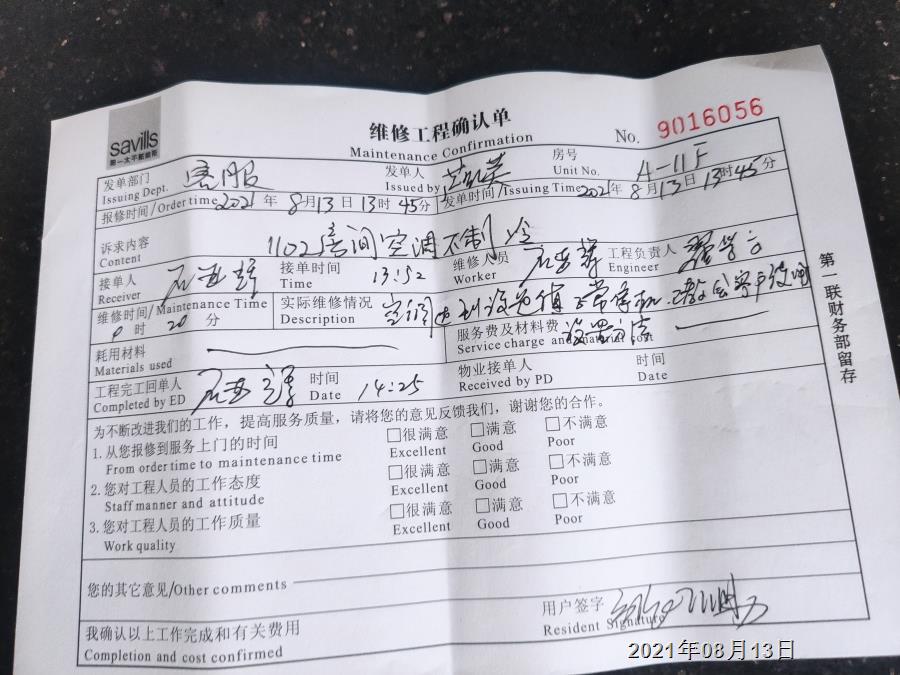 savills
第一太平戴维斯
维修工程确认单
Maintenance Confirmation
No. 9016056
发单部门 客服 发单人 房号 A-11F
Issuing Dept. Issued by Unit No.
报修时间/Order time 2021 年 8 月 13 日 13 时 45 分 发单时间/Issuing Time 2021 年 8 月 13 日 13 时 45 分
诉求内容 1102房间空调不制冷
Content
接单人 接单时间 13:52 维修人员 工程负责人
Receiver Time Worker Engineer
维修时间/Maintenance Time 实际维修情况 空调达到设定值正常停机
0 时 20 分 Description
服务费及材料费
Service charge and material cost
耗用材料
Materials used
工程完工回单人 时间 14:25 物业接单人 时间
Completed by ED Date Received by PD Date
为不断改进我们的工作，提高服务质量，请将您的意见反馈我们，谢谢您的合作。
1. 从您报修到服务上门的时间 □很满意 □满意 □不满意
From order time to maintenance time Excellent Good Poor
2. 您对工程人员的工作态度 □很满意 □满意 □不满意
Staff manner and attitude Excellent Good Poor
3. 您对工程人员的工作质量 □很满意 □满意 □不满意
Work quality Excellent Good Poor
您的其它意见/Other comments
用户签字
Resident Signature
我确认以上工作完成和有关费用
Completion and cost confirmed
第一联财务部留存
2021年08月13日